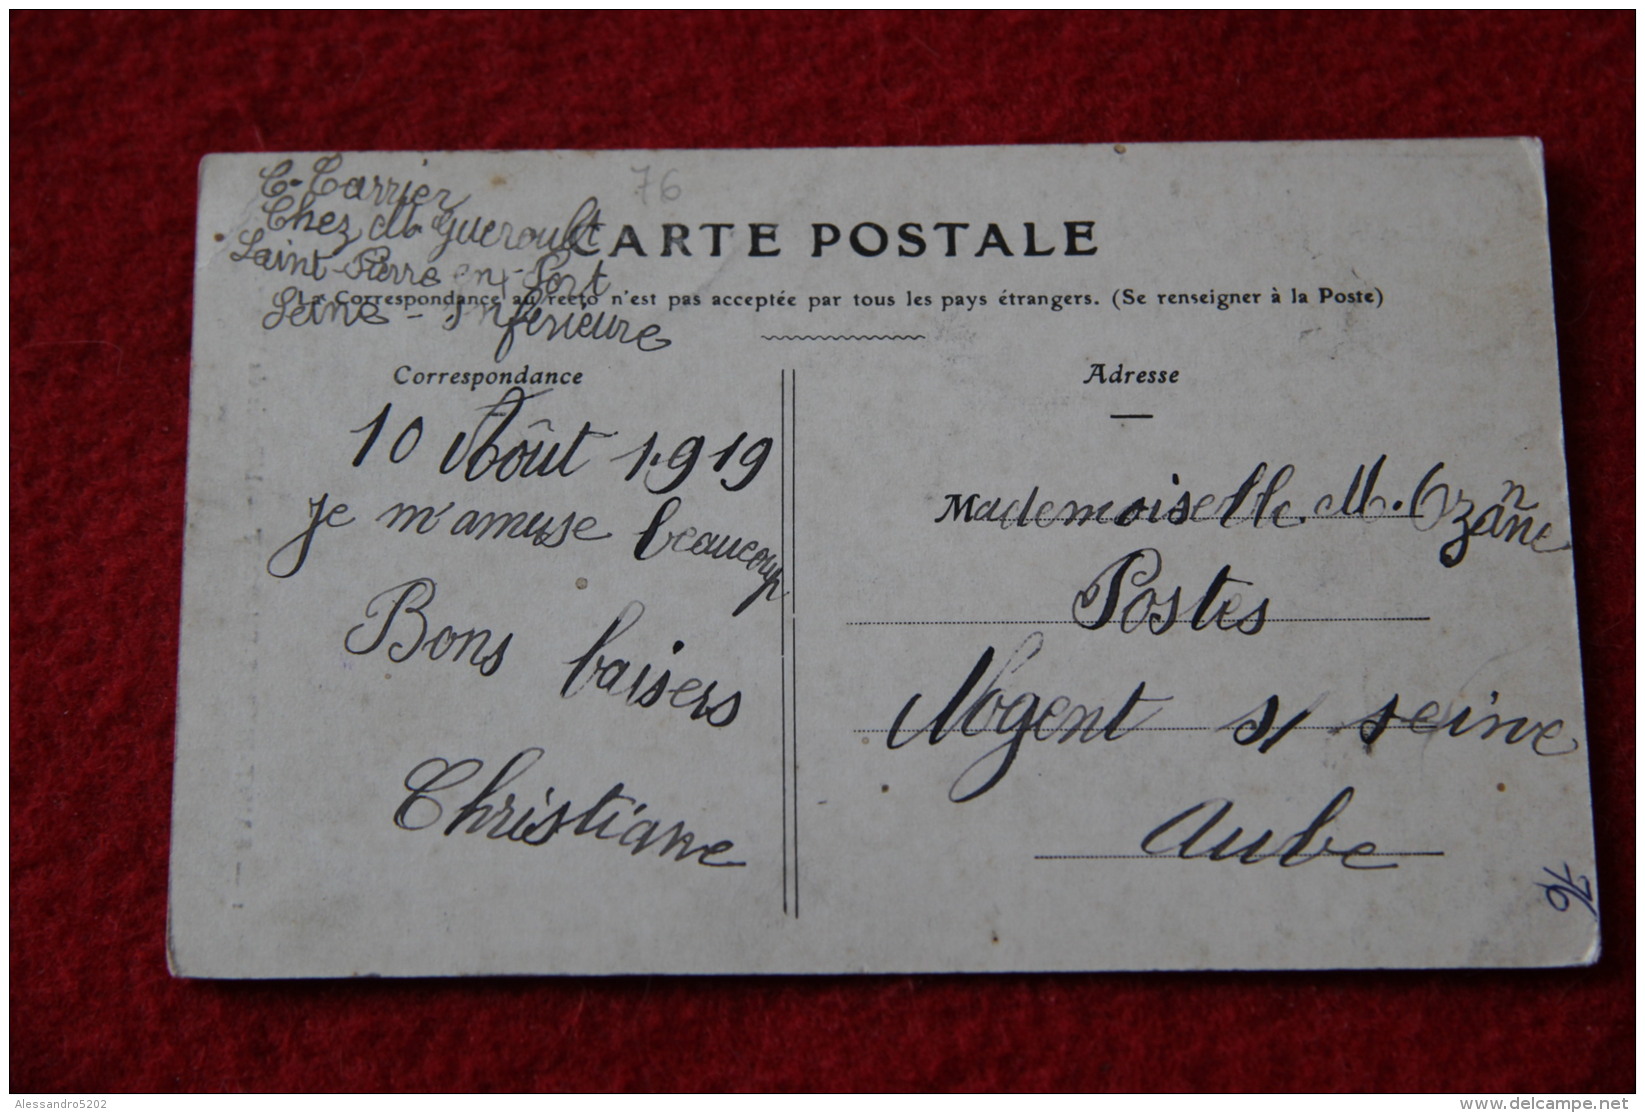 76
C. Carrier
Chez M. Gueroult
Saint-Pierre en-Port
Seine-Inférieure
CARTE POSTALE
La Correspondance au recto n'est pas acceptée par tous les pays étrangers. (Se renseigner à la Poste)
Correspondance
10 Août 1.919
Je m'amuse beaucoup
Bons baisers
Christiane
Adresse
Mademoiselle. M. Ozanne
Postes
Nogent s/ seine
Aube
76
Alessandro5202
www.delcampe.net